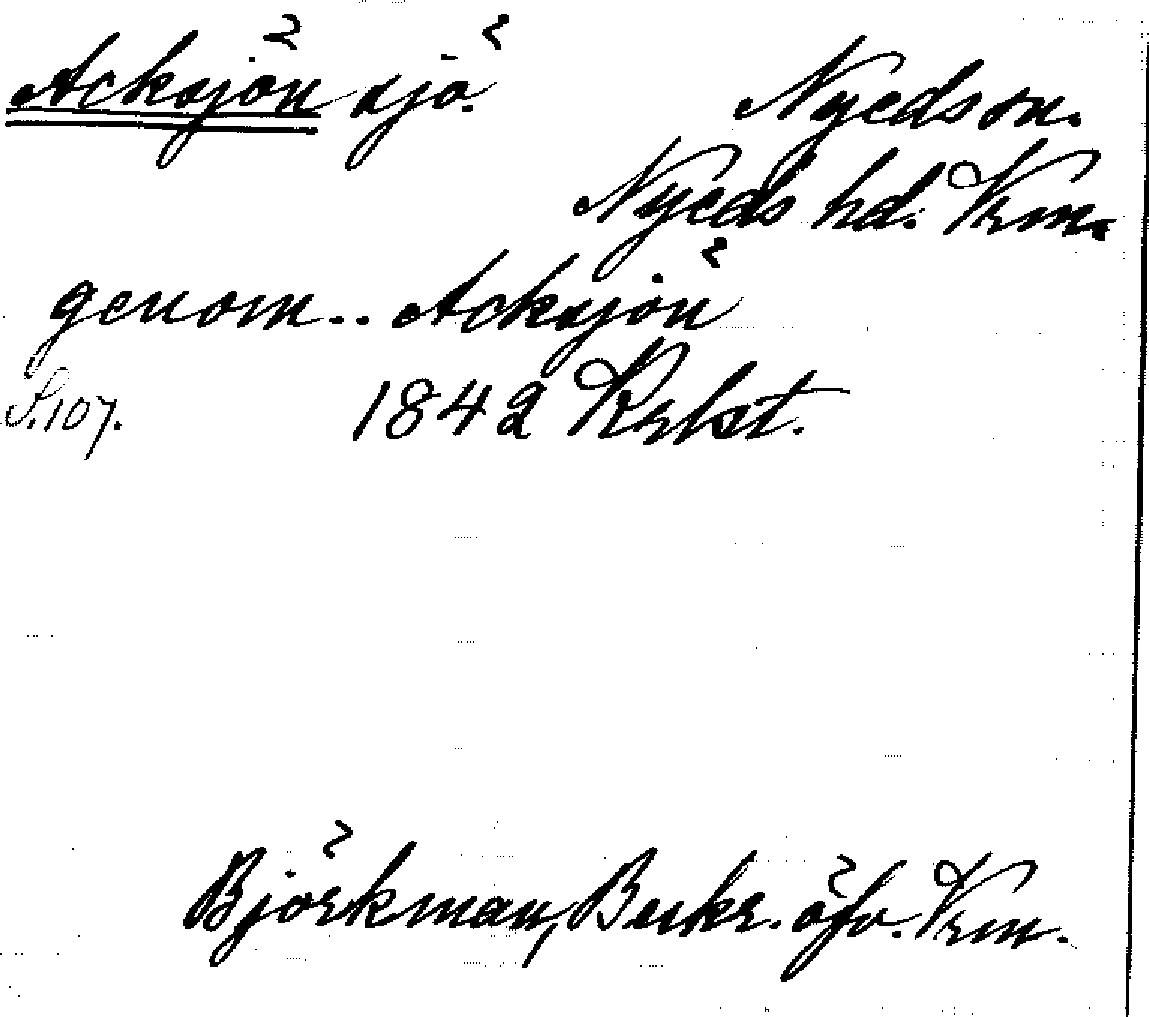 Acksjön sjö. Nyeds sn.
Nyeds hd. Vrm.
genom.. Acksjön
S. 107. 1842 Krlst.
Björkman, Beskr. öfv. Vrm.